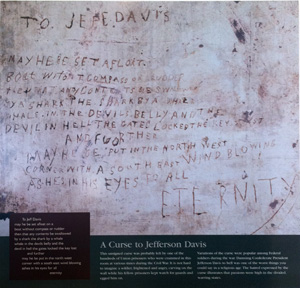 TO JEFF DAVIS
MAY HE BE SET AFLOAT
BOAT WITOUT COMPASS OR
THEN THAT ANY CONTETS BE
BY A SHARK THE SHARK BY A
WHALE. IN THE DEVILS BELLY AND THE
DEVIL IN HELL THE GATES LOCKED THE KEY LOST
AND FURTHER
MAY HE BE PUT IN THE NORTH WEST
CORNER WITH A SOUTH EAST WIND BLOWING
ASHES IN HIS EYES TO ALL
ETERNITY
To Jeff Davis
may he be set afloat on a
boat without compass or rudder
then that any contents be swallowed
by a shark the shark by a
whale in the devils belly and the
devil in hell the gates locked the key lost
and further
may he be put in the north west
corner with a south east wind blowing
ashes in his eyes for all
eternity
A Curse to Jefferson Davis
This unsigned curse was probably left by one of the
hundreds of Union prisoners who were
in this
room at various times during the Civil War. It is not hard
to imagine a soldier, frightened and angry, carving on the
wall while his fellow prisoners kept watch for guards and
egged him on.
Variations of the curse were popular among Federal
soldiers during the war. Damning Confederate President
Jefferson Davis to hell was one of the worst things you
could say in a religious age. The hatred expressed by the
curse illustrates that passions were high in the divided
warring states.